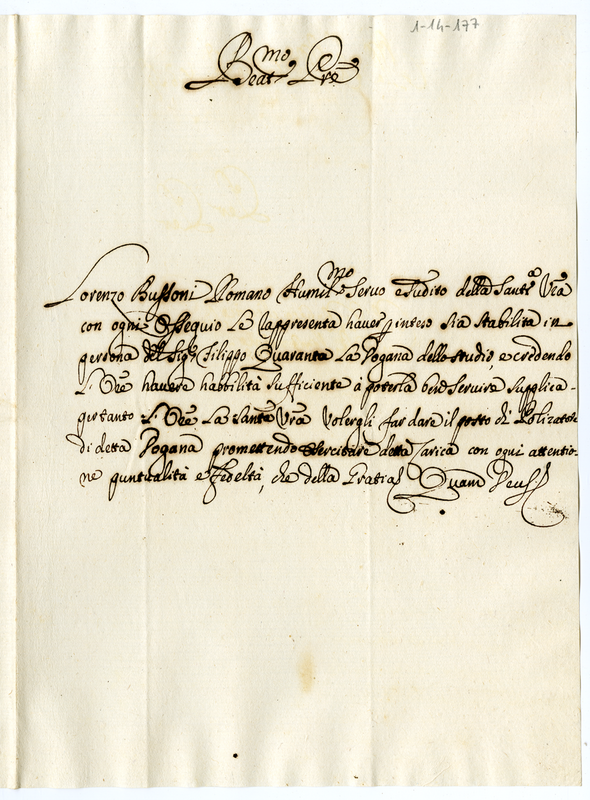 1-14-177
Beat.mo Pre
Lorenzo Bussoni Romano Humil.mo Servo e Sudito della Sant.a Vra
con ogni Ossequio Le rappresenta haver inteso sia stabilita in
persona del Sig.r Filippo Quaranta La Dogana dello studio, e credendo
L'Ore havere habbilità sufficiente à poterla ben servire supplica-
pertanto L'Ore La Santà Vra volergli far dare il posto di Polizatore
di detta Dogana promettendo esercitare detta Carica con ogni attentio-
ne puntualità e Fedeltà, che della Gratia Quam Deus